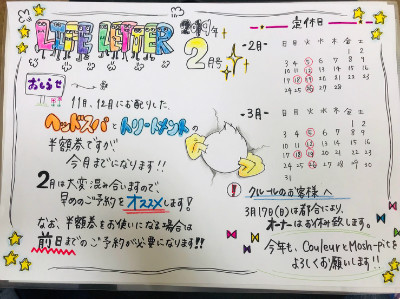 LIFE LETTER
2019年
2月号
おしらせ
11月、12月にお配りした、
ヘッドスパとトリートメントの
半額券ですが
今月までになります!!
2月は大変混み合いますので、
早めのご予約をオススメします!
なお、半額券をお使いになる場合は
前日までのご予約が必要になります!!
定休日
-2月-
日 月 火 水 木 金 土
1 2
3 4 5 6 7 8 9
10 11 12 13 14 15 16
17 18 19 20 21 22 23
24 25 26 27 28
-3月-
日 月 火 水 木 金 土
1 2
3 4 5 6 7 8 9
10 11 12 13 14 15 16
17 18 19 20 21 22 23
24 25 26 27 28 29 30
31
! クルールのお客様へ
3月17日(日)は都合により、
オーナーはお休み致します。
今年も、CouleurとMosh-pitを
よろしくお願いします!!